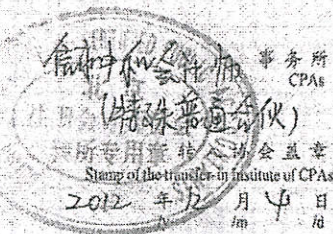 信永中和会计师 事务所
CPAs
(特殊普通合伙)
所专用章 转入协会盖章
Stamp of the transfer-in Institute of CPAs
2012 年 12 月 4 日
/y /m /d